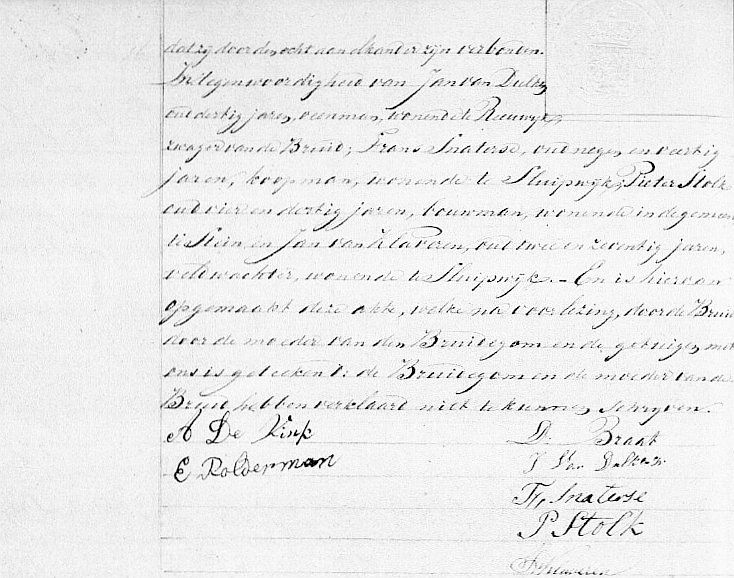 dat zij door den echt aan elkander zijn verbonden.
In tegenwoordigheid van Jan van Dulken
oud dertig jaren, veenman, wonende te Reeuwijk,
zwager van de Bruid; Frans Inaterse, oud negen en veertig
jaren, koopman, wonende te Sluipwijk, Pieter Stolk
oud vier en dertig jaren, bouwman, wonende in de gemeen
te Stein, en Jan van Klaveren, oud twee en zeventig jaren,
veldwachter, wonende te Sluipwijk. – En is hiervan
opgemaakt deze akte, welke na voorlezing, door de Bruid
door de moeder van den Bruidegom en de getuigen met
ons is geteekend: de Bruidegom en de moeder van de
Bruid hebben verklaard niet te kunnen schrijven.
A De Vink D. Braat
E Rolderman J Van Dulken
Fr, Inaterse
P Stolk